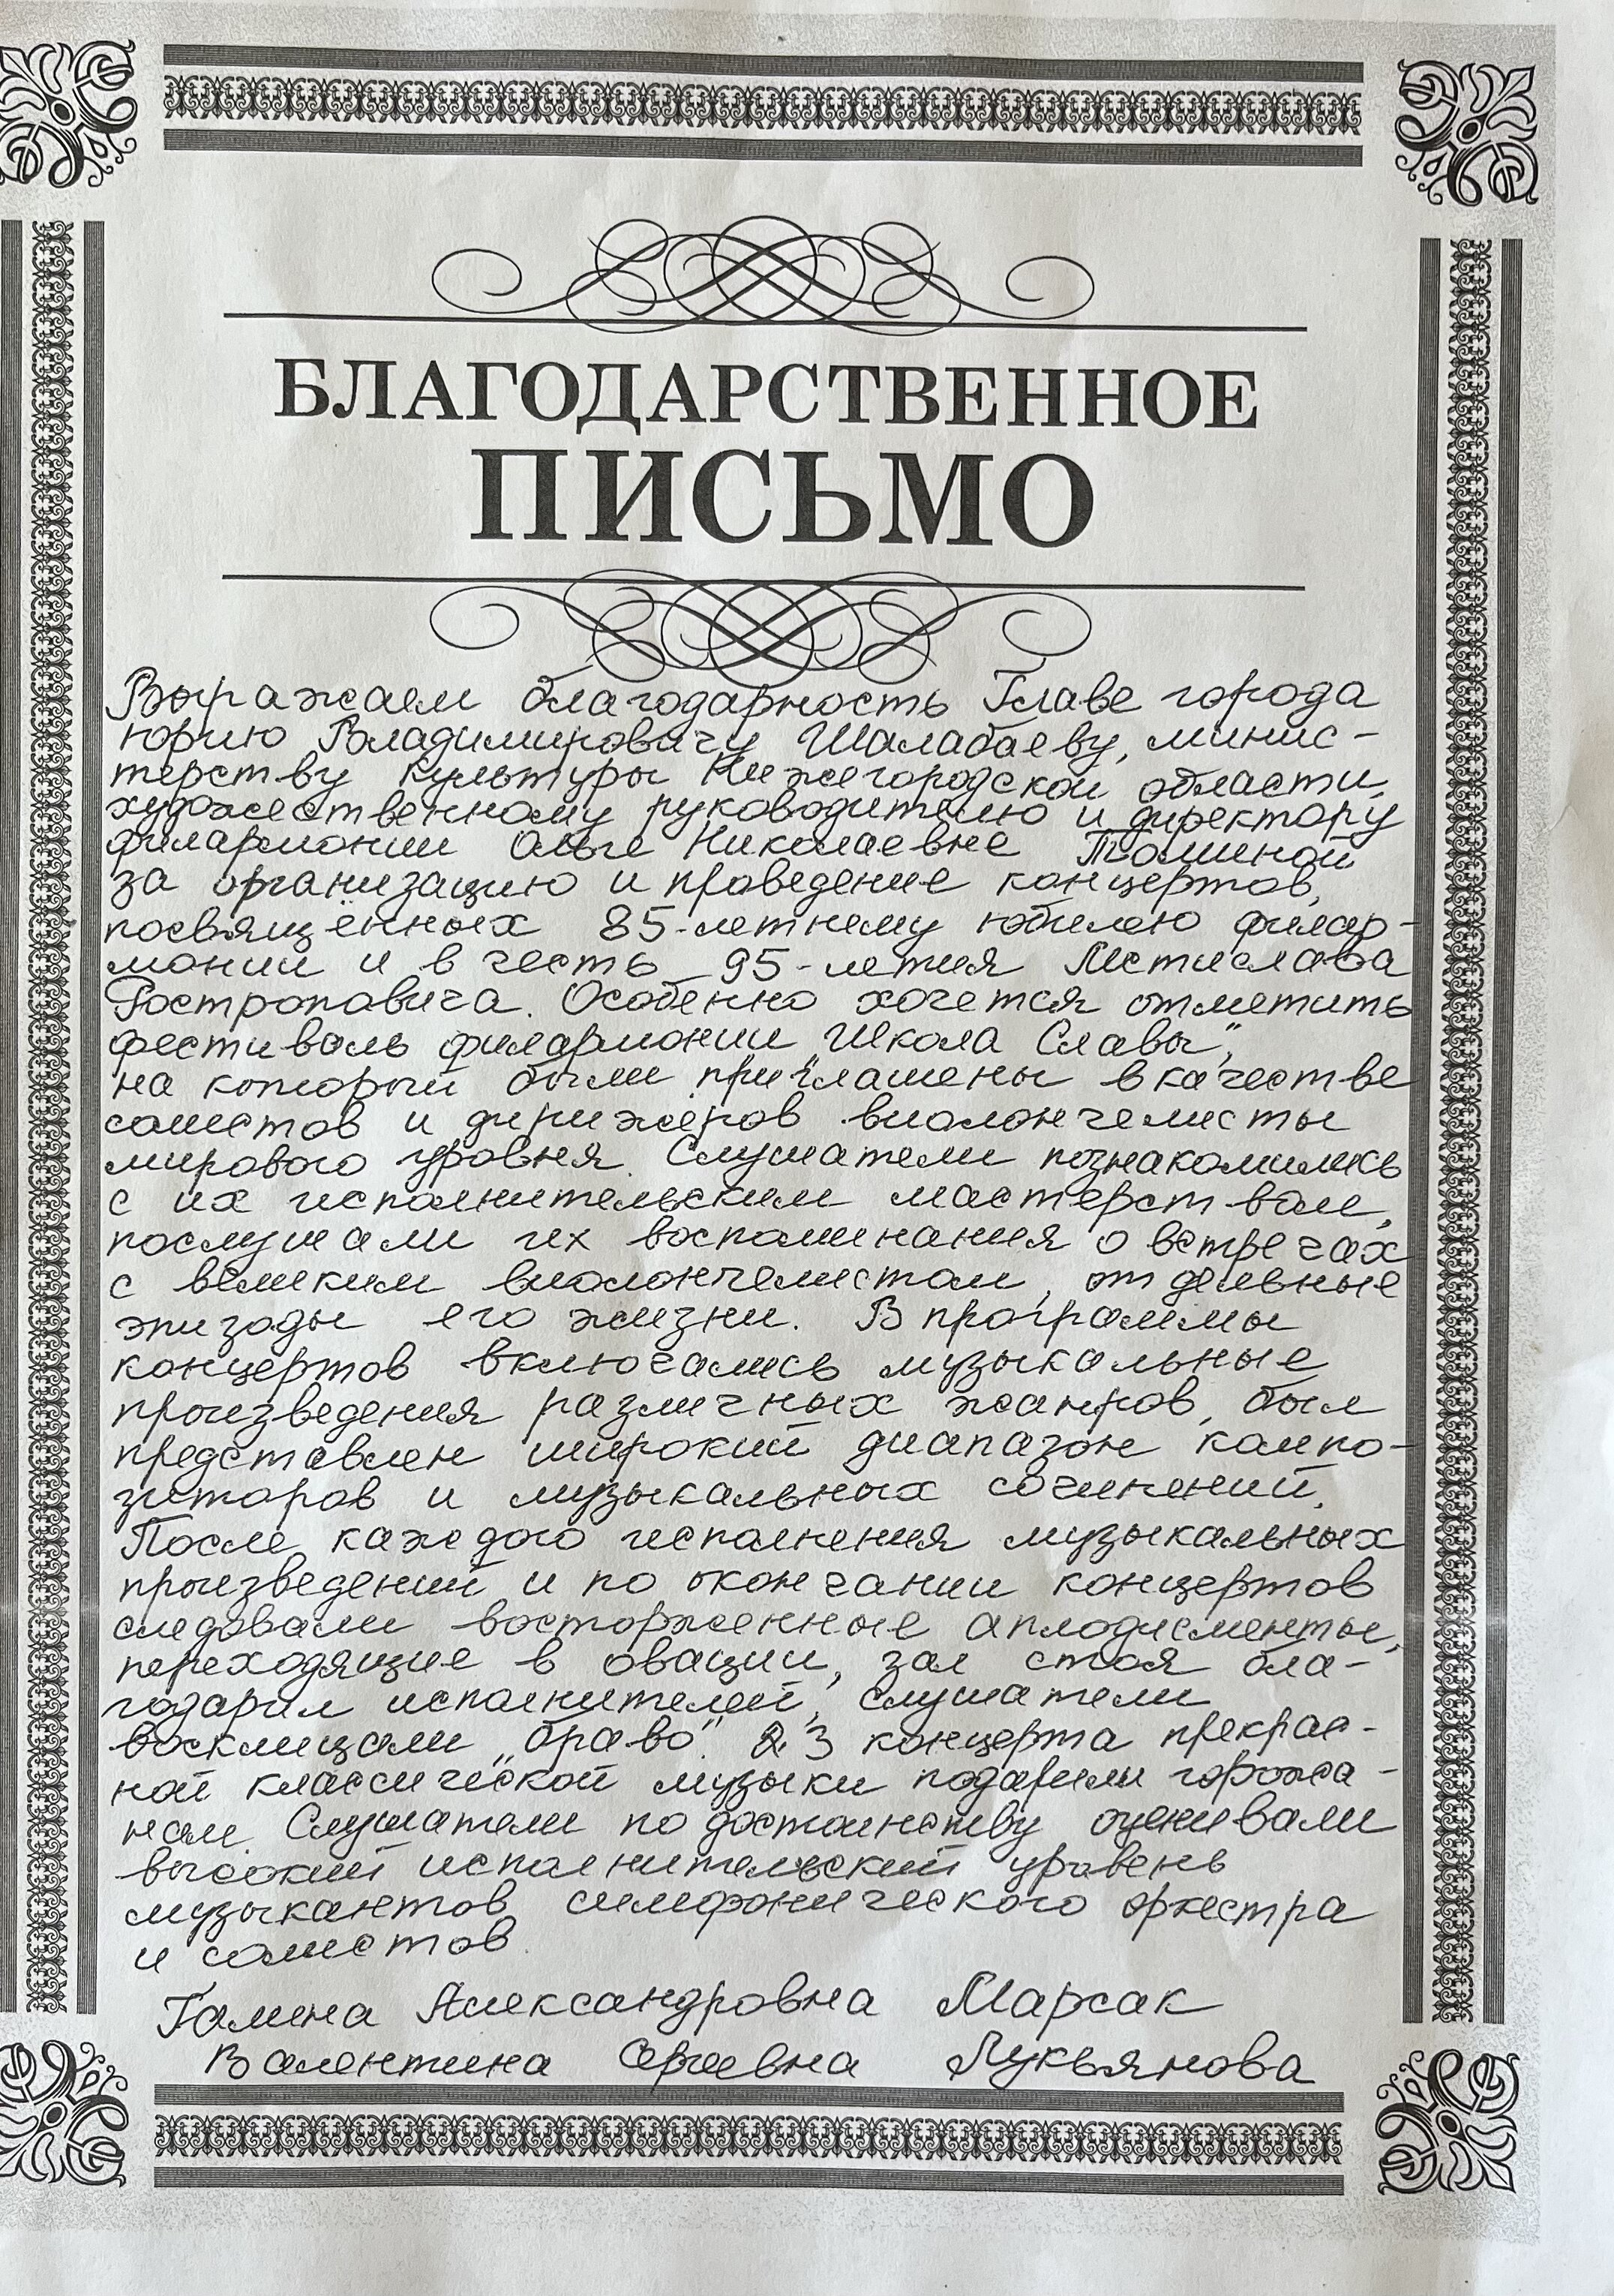 БЛАГОДАРСТВЕННОЕ
ПИСЬМО
Выражаем благодарность Главе города
Юрию Владимировичу Шалабаеву, минис-
терству культуры Нижегородской области,
художественному руководителю и директору
филармонии Ольге Николаевне Томиной
за организацию и проведение концертов,
посвящённых 85-летнему юбилею филар-
монии и в честь 95-летия Мстислава
Ростроповича. Особенно хочется отметить
фестиваль филармонии „Школа Славы",
на который были приглашены в качестве
солистов и дирижёров виолончелисты
мирового уровня. Слушатели познакомились
с их исполнительским мастерством,
послушали их воспоминания о встречах
с великим виолончелистом, отдельные
эпизоды его жизни. В программы
концертов включались музыкальные
произведения различных жанров, был
представлен широкий диапазон компо-
зиторов и музыкальных сочинений.
После каждого исполнения музыкальных
произведений и по окончании концертов
следовали восторженные аплодисменты,
переходящие в овации, зал стоя бла-
годарил исполнителей, слушатели
восклицали „браво". 23 концерта прекрас-
ной классической музыки подарили горожа-
нам. Слушатели по достоинству оценивали
высокий исполнительский уровень
музыкантов симфонического оркестра
и солистов.
Галина Александровна Марсак
Валентина Сергеевна Лукьянова